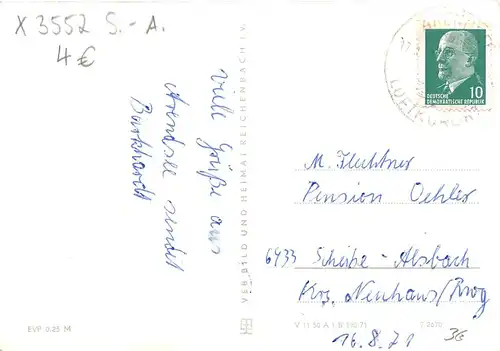 X 3552 S.-A.
4 €
Viele Grüße aus
Arendsee sendet
Burkhardt
VEB BILD UND HEIMAT REICHENBACH I. V.
DEUTSCHE
DEMOKRATISCHE REPUBLIK 10
LUFTKURORT
M. Flechtner
Pension Oehler
6433 Scheibe-Alsbach
Krs. Neuhaus/Rwg
EVP 0.25 M
V 11 50 A 1 B
16.8.71